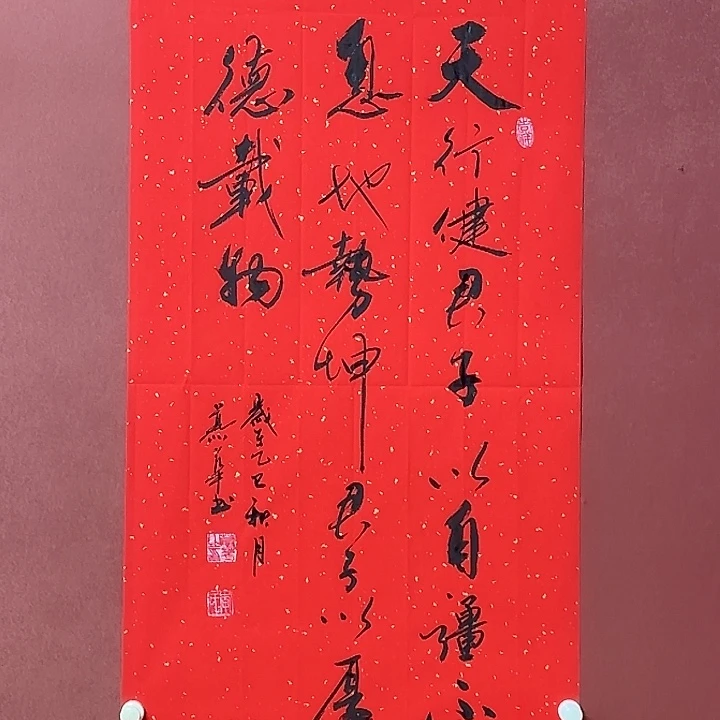 天行健君子以自彊不
息地勢坤君子以厚
德載物
歲在乙巳秋月
燕華书